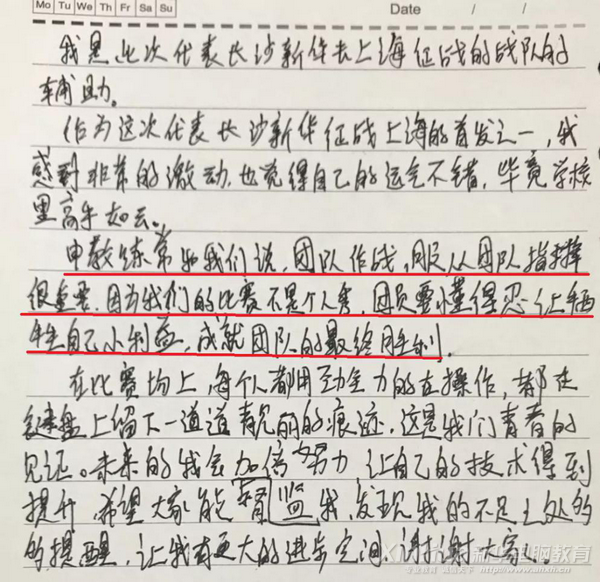 Mo Tu We Th Fr Sa Su Date / /
我是此次代表长沙新华去上海征战的战队的
辅助。
作为这次代表长沙新华征战上海的首发之一,我
感到非常的激动,也觉得自己的运气不错,毕竟学校
里高手如云。
申教练常和我们说,团队作战,服从团队指挥
很重要,因为我们的比赛不是个人秀,团员要懂得忍让牺
牲自己小利益,成就团队的最终胜利。
在比赛场上,每个人都用劲全力的在操作,都在
键盘上留下一道道靓丽的痕迹,这是我们青春的
见证。未来的我会加倍努力 让自己的技术得到
提升,希望大家能督监我,发现我的不足之处的
的提醒,让我有更大的进步空间,谢谢大家
电脑教育